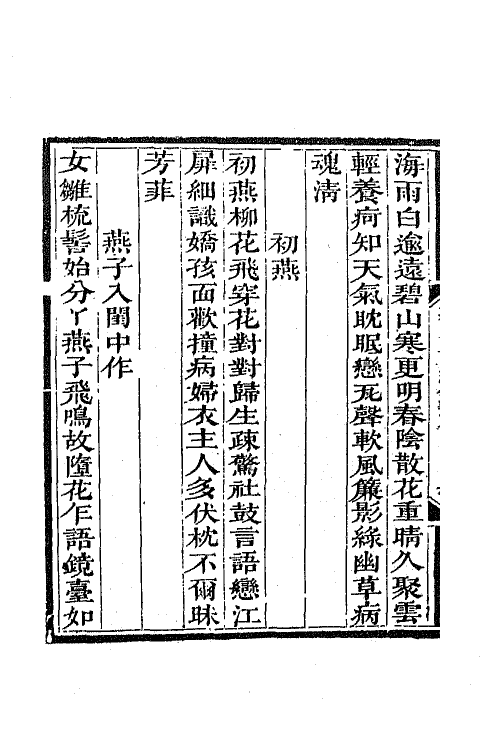 海雨白逾遠碧山寒更明春陰散花重晴久聚雲
輕養疴知天氣耽眠戀瓦聲軟風簾影綠幽草病
魂清
初燕
初燕柳花飛穿花對對歸生疎驚社鼓言語戀江
扉細識嬌孩面歡撞病婦衣主人多伏枕不爾昧
芳菲
燕子入閨中作
女雛梳髻始分丫燕子飛鳴故墮花乍語鏡臺如